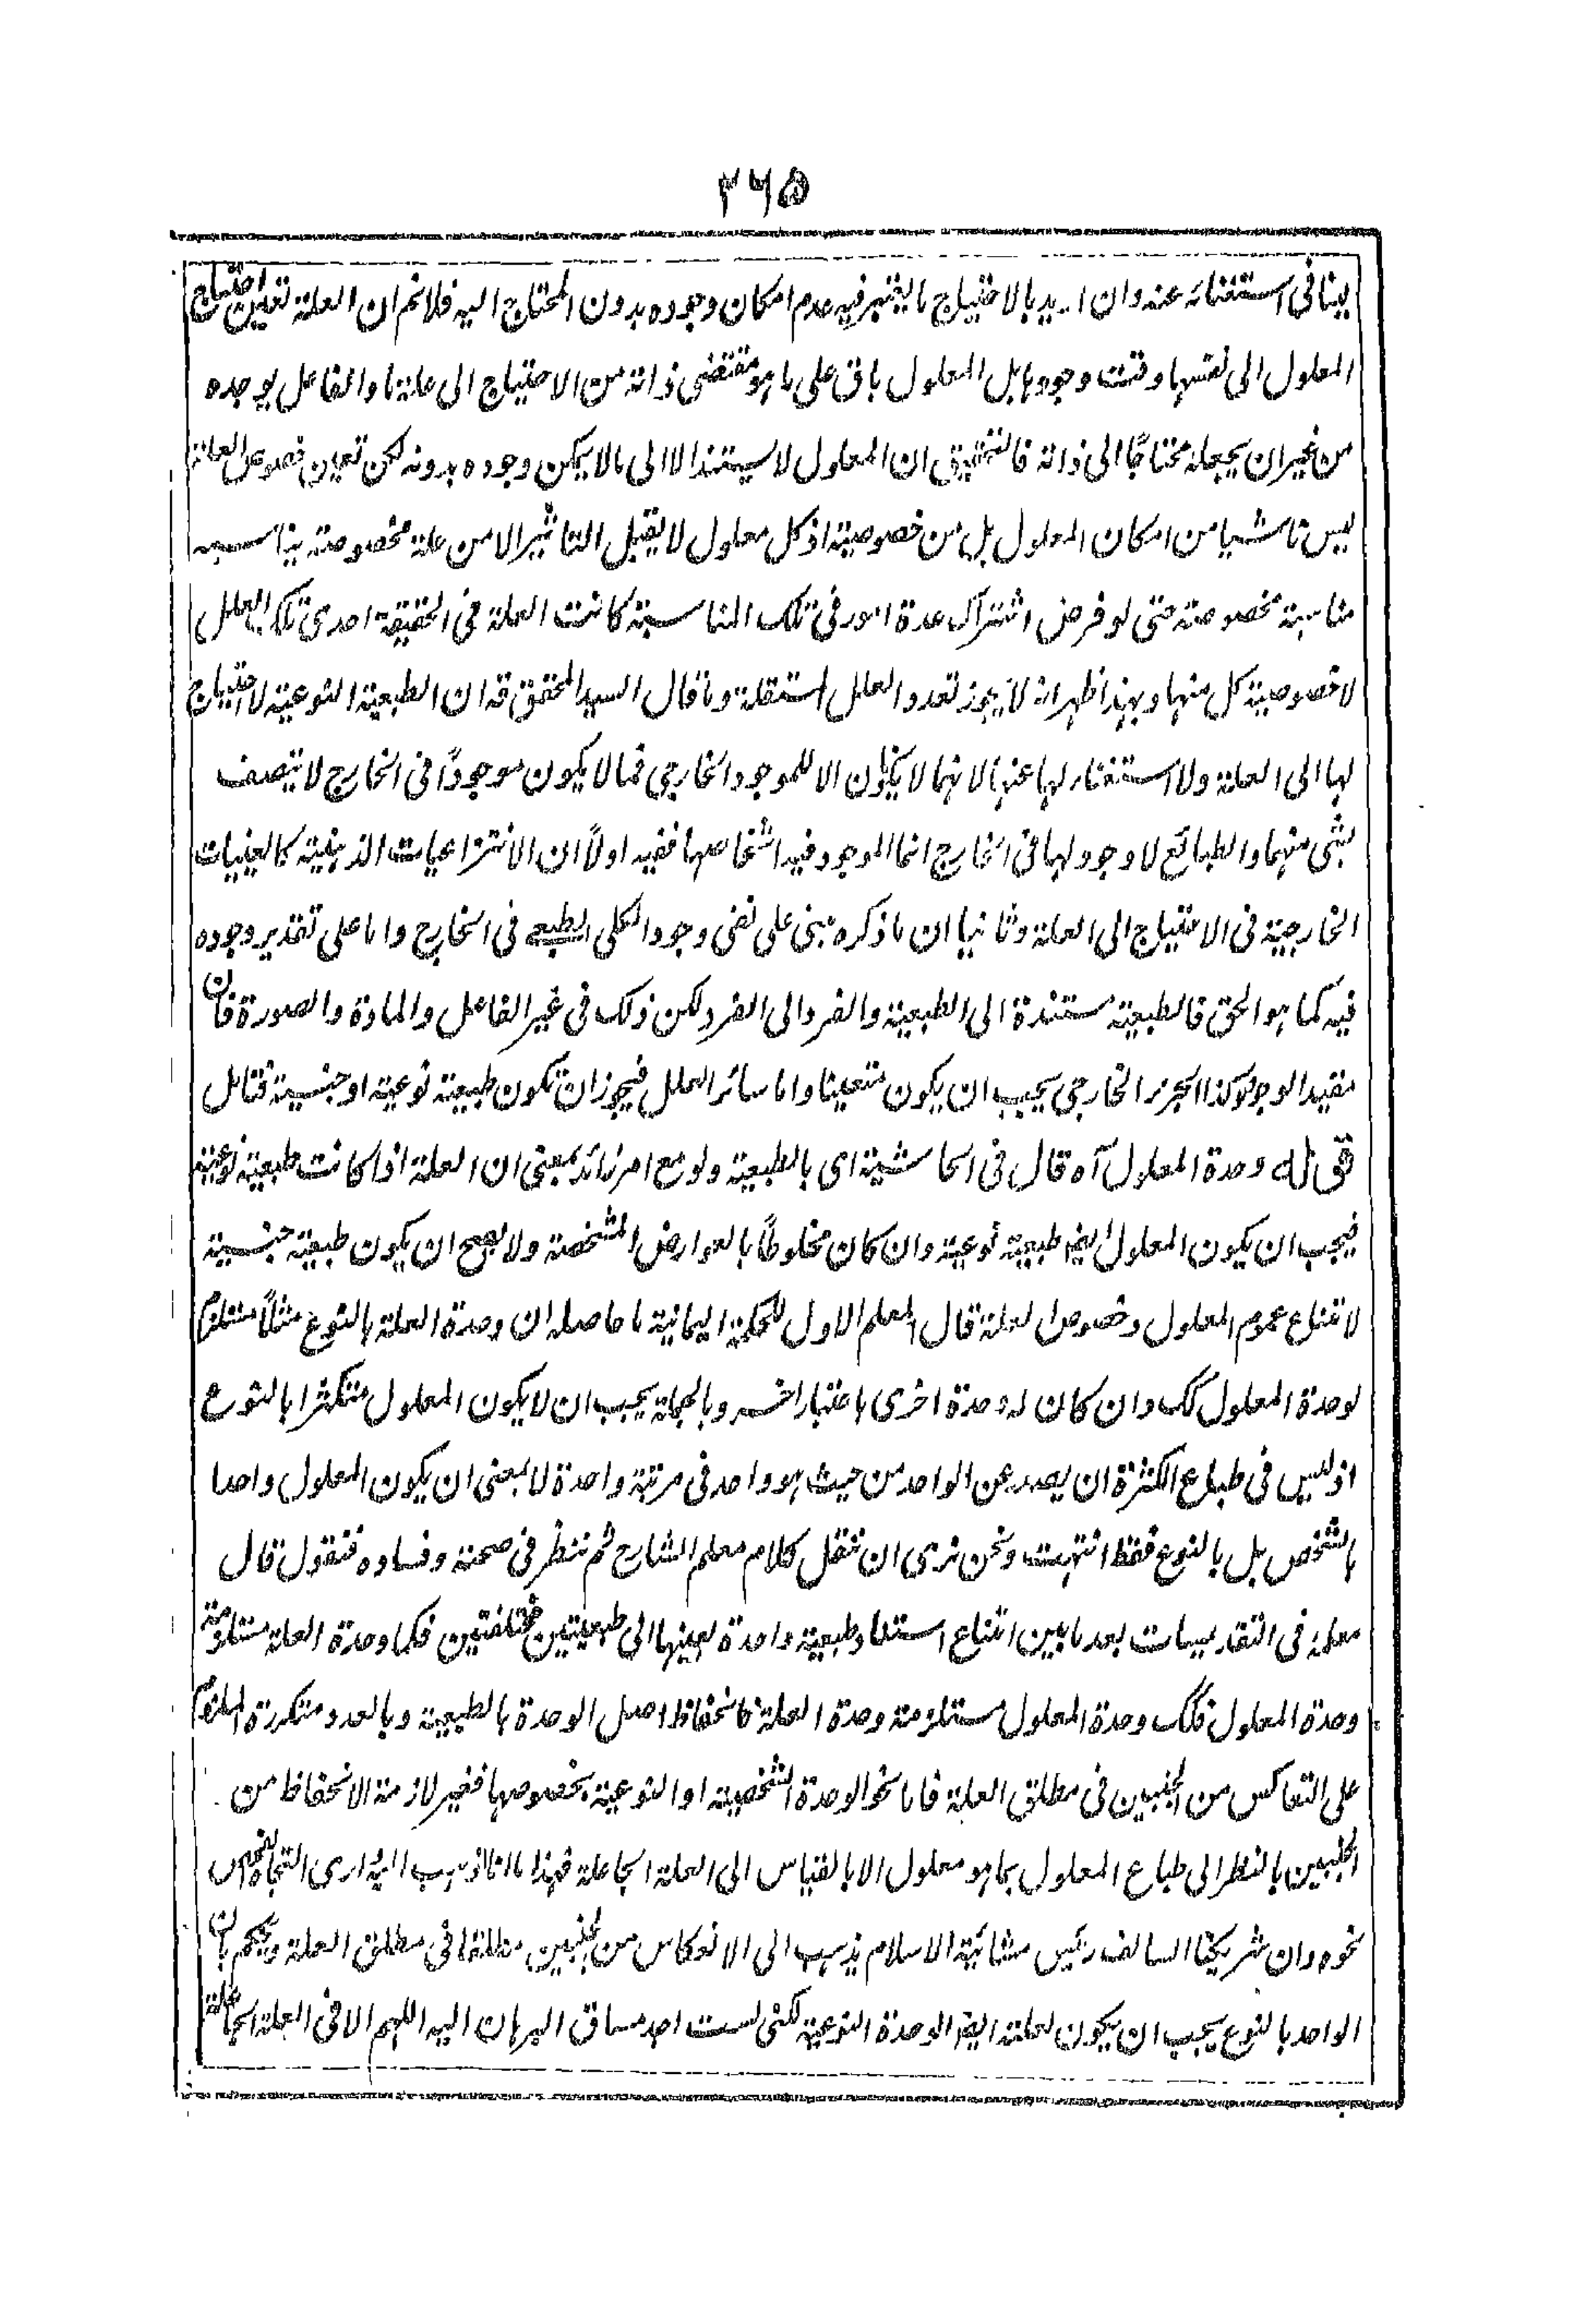 ۲۶۵
ينافى استغنائه عنه وان اريد بالاحتياج ما يعتبر فيه عدم امكان وجوده بدون المحتاج اليه فلانم ان العلة تعين احتياج
المعلول الى نفسها وقت وجودها بل المعلول باق على ما هو مقتضى ذاته من الاحتياج الى علة ما والفاعل يوجده
من غير ان يجعله محتاجًا الى ذاته فالتحقيق ان المعلول لا يستند الا الى مالا يمكن وجوده بدونه لكن تعين خصوص العلة
ليس ناشيا من امكان المعلول بل من خصوصيته اذ كل معلول لا يقبل التاثير الا من علة مخصوصة يناسبه
مناسبة مخصوصة حتى لو فرض اشتراك عدة امور فى تلك المناسبة كانت العلة فى الحقيقة احدى تلك العلل
لا خصوصية كل منها وبهذا ظهر انه لا يجوز تعدد العلل المستقلة وما قال السيد المحقق قه ان الطبيعة النوعية لا احتياج
لها الى العلة ولا استغناء لها عنها لانهما لا يكونان الا للموجود الخارجى فما لا يكون موجودًا فى الخارج لا يتصف
بشئ منهما والطبائع لا وجود لها فى الخارج انما الموجود فيه اشخاصها ففيه اولاً ان الانتزاعيات الذهنية كالعينيات
الخارجية فى الاحتياج الى العلة وثانيا ان ما ذكره مبنى على نفى وجود الكلى الطبعى فى الخارج واما على تقدير وجوده
فيه كما هو الحق فالطبيعة مستندة الى الطبيعة والفرد الى الفرد لكن ذلك فى غير الفاعل والمادة والصورة فان
مفيد الوجود وكذا الجزء الخارجى يجب ان يكون متعينا واما سائر العلل فيجوز ان تكون طبيعة نوعية او جنسية فتامل
قوله وحدة المعلول آه قال فى الحاشية اى بالطبيعة ولو مع امر زائد بمعنى ان العلة اذا كانت طبيعة نوعية
فيجب ان يكون المعلول ايضا طبيعة نوعية وان كان مخلوطًا بالعوارض المشخصة ولا يصح ان يكون طبيعة جنسية
لامتناع عموم المعلول وخصوص العلة قال المعلم الاول للحكمة اليمانية ما حاصله ان وحدة العلة بالنوع مثلاً مستلزم
لوحدة المعلول كك وان كان له وحدة اخرى باعتبار اخر وبالجملة يجب ان لا يكون المعلول متكثرا بالنوع
اذ ليس فى طباع الكثرة ان يصدر عن الواحد من حيث هو واحد فى مرتبة واحدة لا بمعنى ان يكون المعلول واحدا
بالشخص بل بالنوع فقط انتهت ونحن نرى ان ننقل كلام معلم الشارح ثم ننظر فى صحته وفساده فنقول قال
معلمه فى التقديسات بعد ما بين امتناع استناد طبيعة واحدة بعينها الى طبيعتين مختلفتين فكما وحدة العلة مستلزمة
وحدة المعلول فكك وحدة المعلول مستلزمة وحدة العلة فانحفاظ اصل الوحدة بالطبيعة وبالعدد متكررة اللزوم
على التعاكس من الجنبين فى مطلق العلة فاما نحو الوحدة الشخصية او النوعية بخصوصها فغير لازمة الانحفاظ من
الجنبين بالنظر الى طباع المعلول بما هو معلول الا بالقياس الى العلة الجاعلة فهذا ما انا اذهب اليه ارى التجاه الفحص
نحوه وان شريكنا السالف رئيس مشائية الاسلام يذهب الى الانعكاس من الجنبين مطلقا فى مطلق العلة ويحكم بان
الواحد بالنوع يجب ان يكون لعلته ايضا الوحدة النوعية لكنى لست اجد مساق البرهان اليه اللهم الا فى العلة الجاعلة